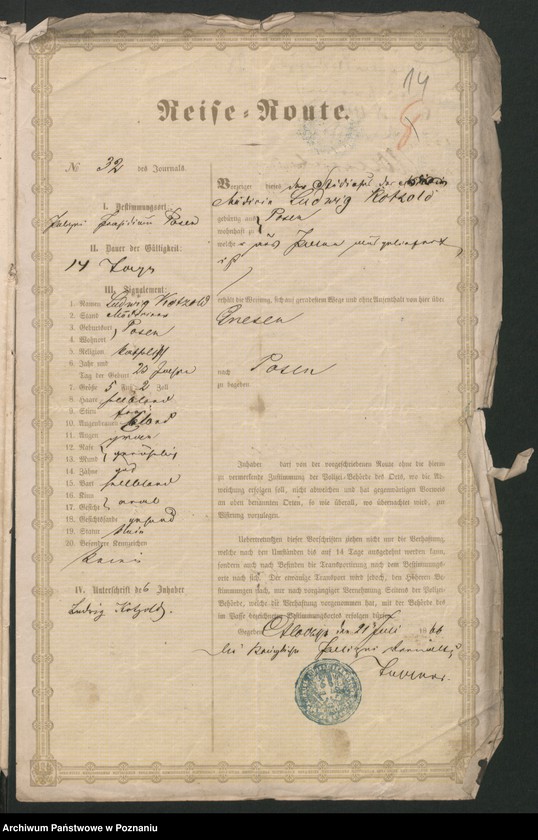 14
Reise-Route.
№ 32 des Journals.
I. Bestimmungsort.
Posen
II. Dauer der Gültigkeit:
14 Tage
III. Signalement:
1. Namen Ludwig Kotzold
2. Stand
3. Geburtsort
4. Wohnort } Posen
5. Religion katholisch
6. Jahr und
Tag der Geburt 23 Jahre
7. Größe 5 Fuß 2 Zoll
8. Haare hellblond
9. Stirn frei
10. Augenbrauen blond
11. Augen grau
12. Nase
13. Mund } gewöhnlich
14. Zähne gut
15. Bart hellblond
16. Kinn
17. Gesicht } oval
18. Gesichtsfarbe gesund
19. Statur klein
20. Besondere Kennzeichen
keine
IV. Unterschrift des Inhaber
Ludwig Kotzold.
Vorzeiger dieses der
Ludwig Kotzold
gebürtig aus
wohnhaft zu } Posen
welcher aus
ist
erhält die Weisung, sich auf geradestem Wege und ohne Aufenthalt von hier über
Gnesen
nach Posen
zu begeben
Inhaber darf von der vorgeschriebenen Route ohne die hierin
zu vermerkende Zustimmung der Polizei-Behörde des Orts, wo die Ab-
weichung erfolgen soll, nicht abweichen und hat gegenwärtigen Vermerk
an oben benannten Orten, so wie überall, wo übernachtet wird, zur
Visirung vorzulegen.
Uebertretungen dieser Vorschriften ziehen nicht nur die Verhaftung,
welche nach den Umständen bis auf 14 Tage ausgedehnt werden kann,
sondern auch nach Befinden die Transportirung nach dem Bestimmungs-
orte nach sich. Der etwanige Transport wird jedoch, den Höheren Be-
stimmungen nach, nur nach vorgängiger Vernehmung Seitens der Polizei-
Behörde, welche die Verhaftung vorgenommen hat, mit der Behörde des
im Passe bezeichneten Bestimmungsorts erfolgen dürfen.
Gegeben den 21 Juli 1866
Königliche
Archiwum Państwowe w Poznaniu